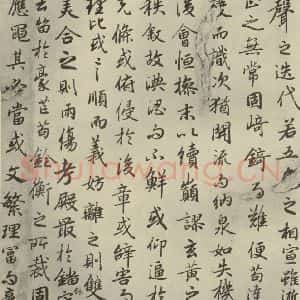 聲之迭代若五色之相宣雖
止之無常固崎錡而難便苟
變而識次猶開流以納泉如失機
後會恒操末以續顛謬玄黃之
秩敘故淟涊而不鮮或仰逼於
先條或俯侵於後章或辭害而
理比或言順而義妨離之則雙
美合之則兩傷考殿最於錙
去留於毫芒苟銓衡之所裁固
應繩其必當或文繁理富而
Shufawang.cn